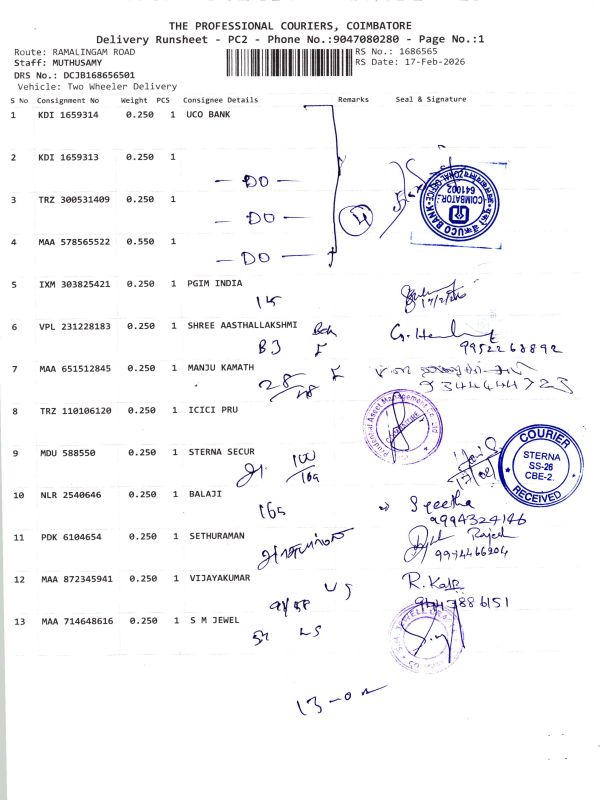 THE PROFESSIONAL COURIERS, COIMBATORE
Delivery Runsheet - PC2 - Phone No.:9047080280 - Page No.:1
Route: RAMALINGAM ROAD
RS No.: 1686565
Staff: MUTHUSAMY
RS Date: 17-Feb-2026
DRS No.: DCJB168656501
Vehicle: Two Wheeler Delivery
S No Consignment No Weight PCS Consignee Details Remarks Seal & Signature
1 KDI 1659314 0.250 1 UCO BANK
2 KDI 1659313 0.250 1
- DO -
3 TRZ 300531409 0.250 1
- DO -
4 MAA 578565522 0.550 1
- DO -
UCO BANK
ZONAL OFFICE
COIMBATORE
641002
5 IXM 303825421 0.250 1 PGIM INDIA
15
17/2/26
6 VPL 231228183 0.250 1 SHREE AASTHALLAKSHMI
BJ
9952268892
7 MAA 651512845 0.250 1 MANJU KAMATH
28
9344444723
8 TRZ 110106120 0.250 1 ICICI PRU
Prudential Asset Management Co. Ltd
COIMBATORE
9 MDU 588550 0.250 1 STERNA SECUR
100/169
17/02/
COURIER
STERNA
SS-26
CBE-2.
RECEIVED
10 NLR 2540646 0.250 1 BALAJI
165
Sgeetha
9994324146
11 PDK 6104654 0.250 1 SETHURAMAN
Rajesh
9994466204
12 MAA 872345941 0.250 1 VIJAYAKUMAR
US
R.
9443886151
13 MAA 714648616 0.250 1 S M JEWEL
LS
13-on